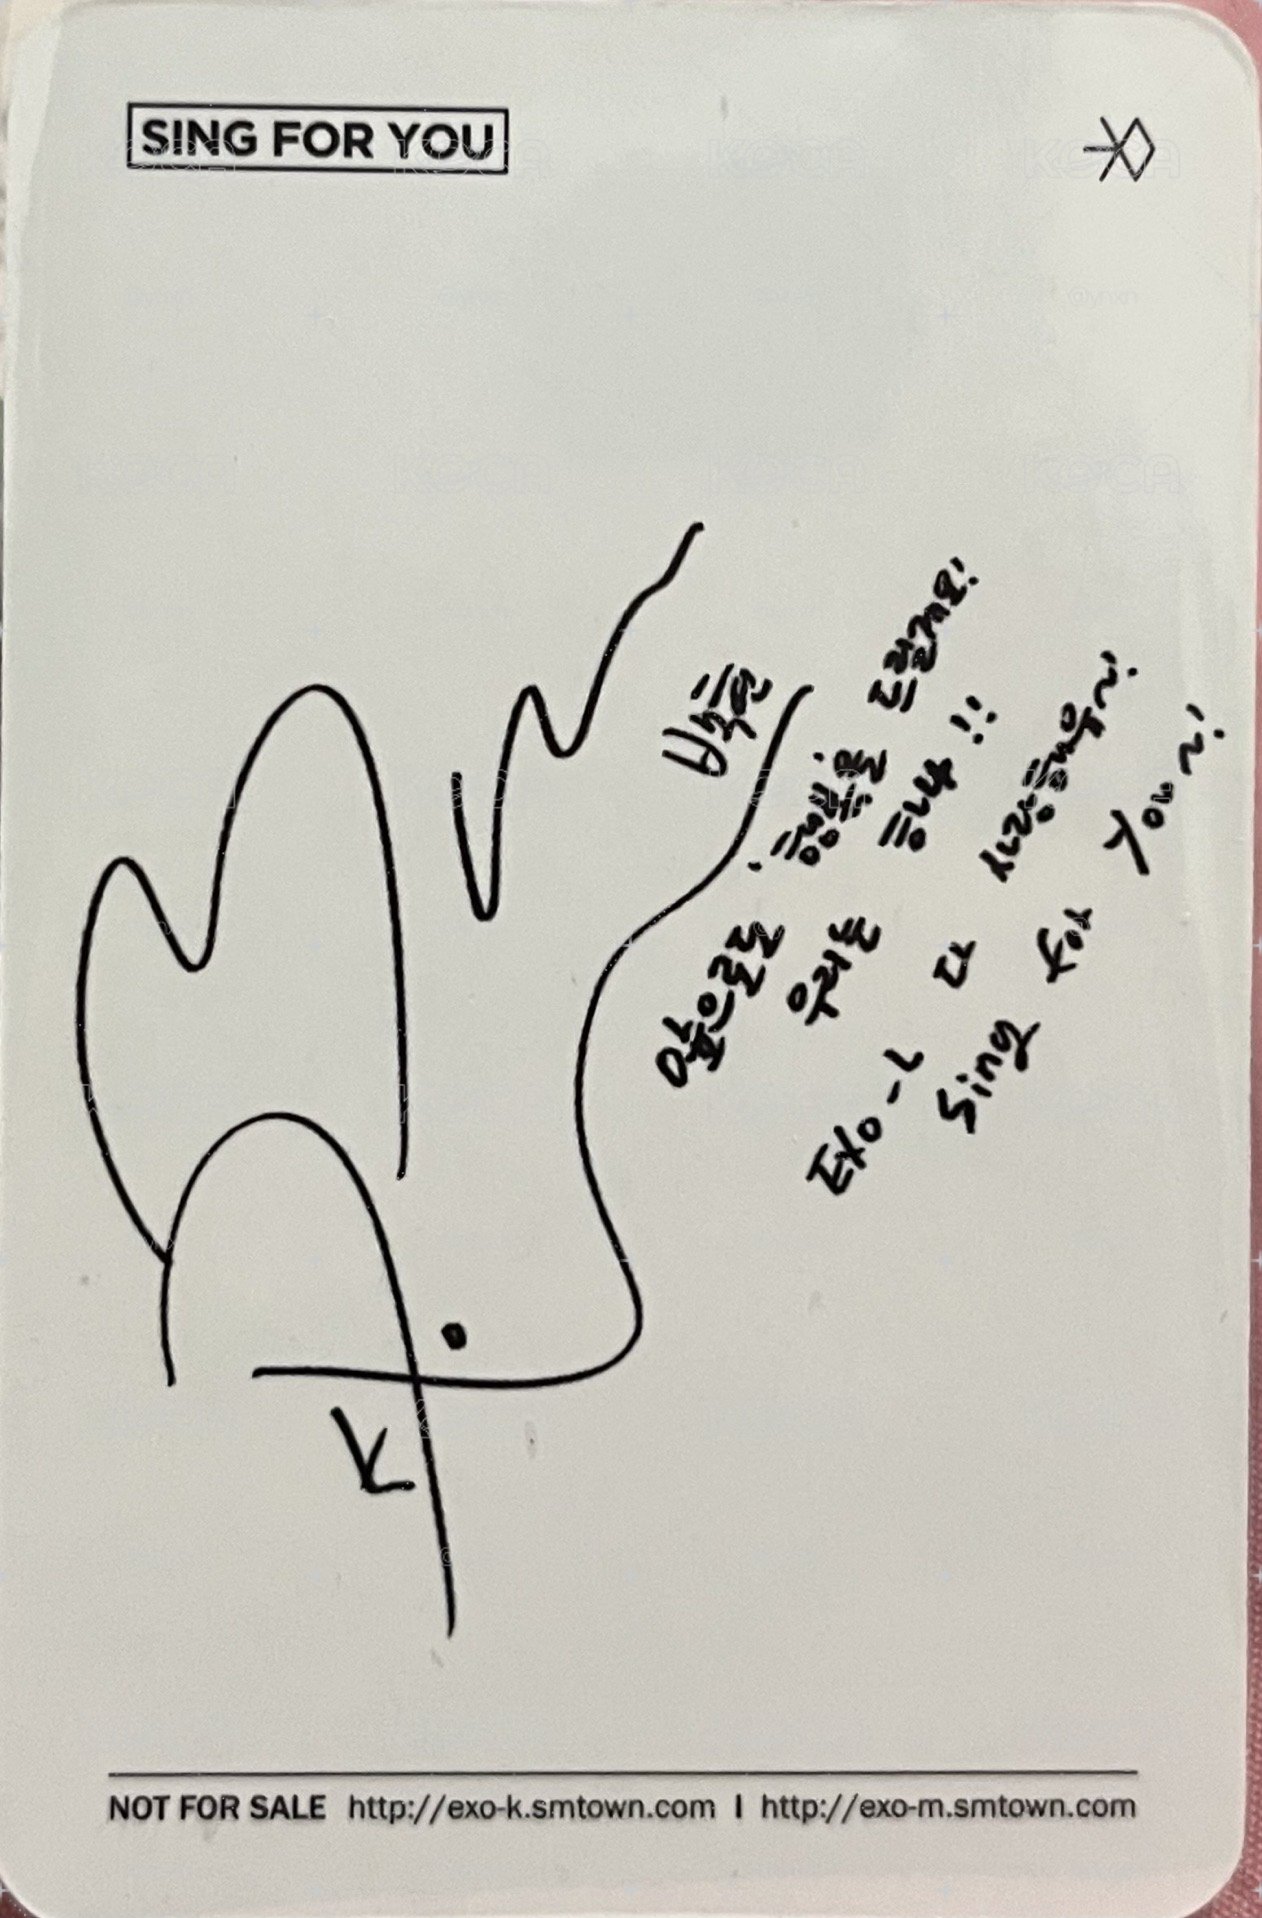 SING FOR YOU
앞으로도 행복을 드릴게요!
우리는 하나!!
EXO-L 다 사랑해용~!
Sing For You~!
NOT FOR SALE http://exo-k.smtown.com I http://exo-m.smtown.com